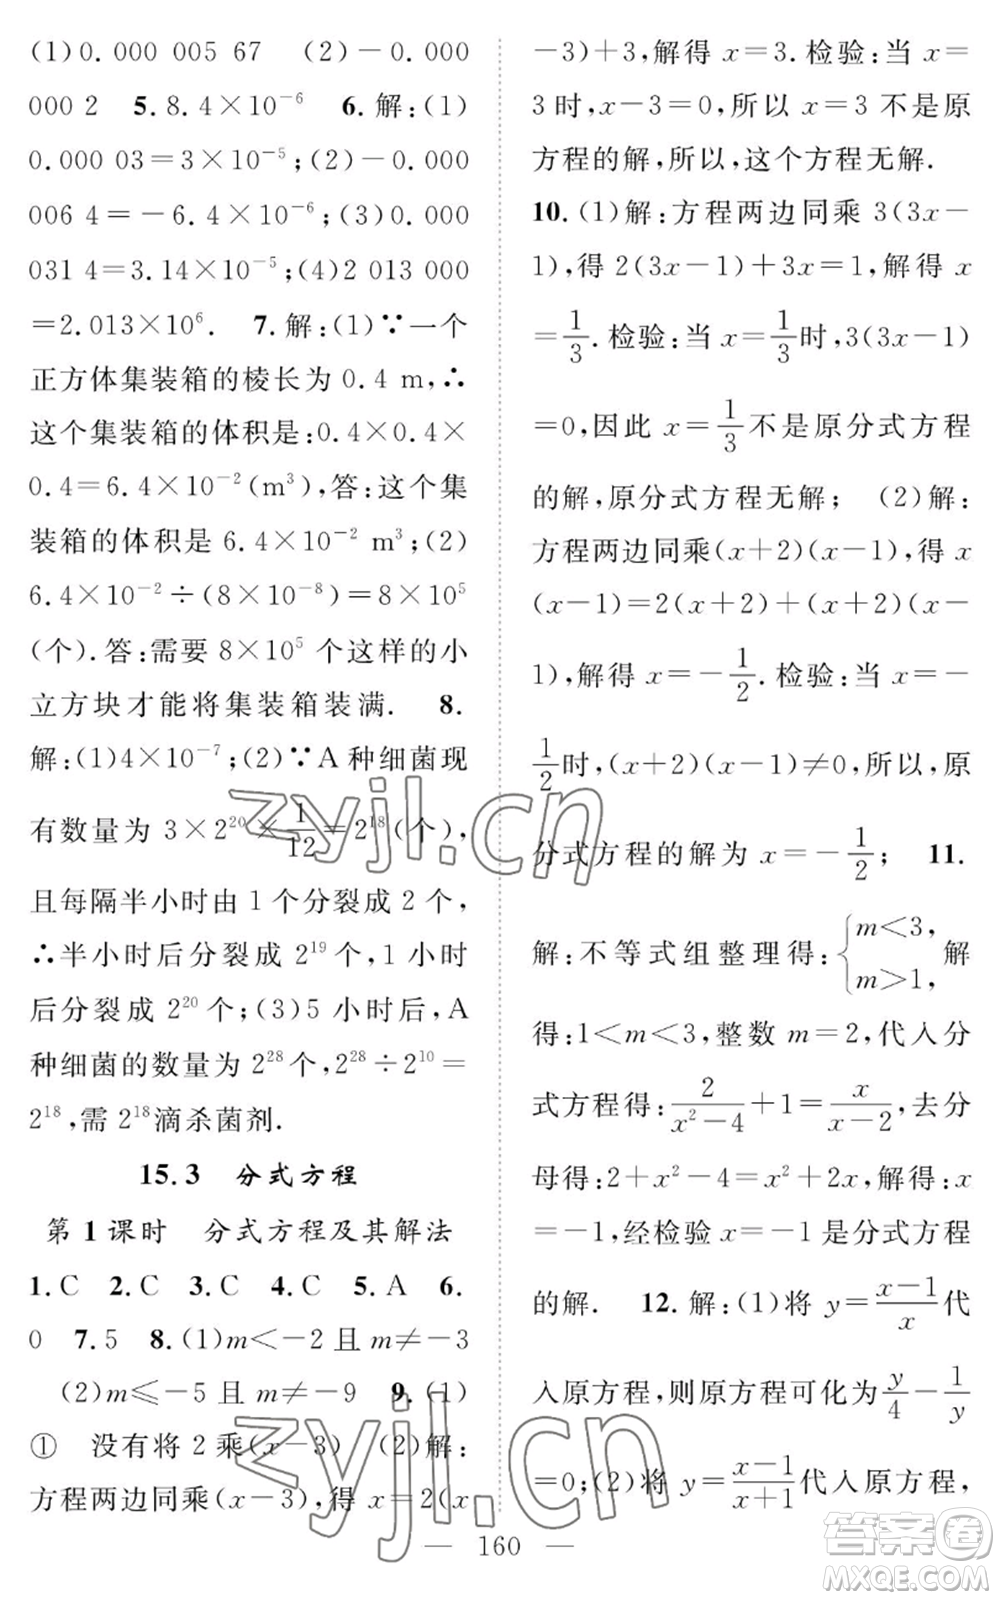 (1)0.000 005 67　(2)－0.000
000 2　5.8.4×10⁻⁶　6.解:(1)
0.000 03＝3×10⁻⁵;(2)－0.000
006 4＝－6.4×10⁻⁶;(3)0.000
031 4＝3.14×10⁻⁵;(4)2 013 000
＝2.013×10⁶.　7.解:(1)∵一个
正方体集装箱的棱长为 0.4 m,∴
这个集装箱的体积是:0.4×0.4×
0.4＝6.4×10⁻²(m³),答:这个集
装箱的体积是 6.4×10⁻² m³;(2)
6.4×10⁻²÷(8×10⁻⁸)＝8×10⁵
(个).答:需要 8×10⁵ 个这样的小
立方块才能将集装箱装满.　8.
解:(1)4×10⁻⁷;(2)∵A 种细菌现
有数量为 3×2²⁰×1/12＝2¹⁸(个),
且每隔半小时由 1 个分裂成 2 个,
∴半小时后分裂成 2¹⁹ 个,1 小时
后分裂成 2²⁰ 个;(3)5 小时后,A
种细菌的数量为 2²⁸ 个,2²⁸÷2¹⁰＝
2¹⁸,需 2¹⁸滴杀菌剂.
15.3　分式方程
第 1 课时　分式方程及其解法
1.C　2.C　3.C　4.C　5.A　6.
0　7.5　8.(1)m＜－2 且 m≠－3
(2)m≤－5 且 m≠－9　9.(1)
①　没有将 2 乘(x－3)　(2)解:
方程两边同乘(x－3),得 x＝2(x
－3)＋3,解得 x＝3.检验:当 x＝
3 时,x－3＝0,所以 x＝3 不是原
方程的解,所以,这个方程无解.
10.(1)解:方程两边同乘 3(3x－
1),得 2(3x－1)＋3x＝1,解得 x
＝1/3.检验:当 x＝1/3时,3(3x－1)
＝0,因此 x＝1/3不是原分式方程
的解,原分式方程无解;　(2)解:
方程两边同乘(x＋2)(x－1),得 x
(x－1)＝2(x＋2)＋(x＋2)(x－
1),解得 x＝－1/2.检验:当 x＝－
1/2时,(x＋2)(x－1)≠0,所以,原
分式方程的解为 x＝－1/2;　11.
解:不等式组整理得:{m＜3, m＞1,解
得:1＜m＜3,整数 m＝2,代入分
式方程得:2/(x²－4)＋1＝x/(x－2),去分
母得:2＋x²－4＝x²＋2x,解得:x
＝－1,经检验 x＝－1 是分式方程
的解.　12.解:(1)将 y＝(x－1)/x代
入原方程,则原方程可化为y/4－1/y
＝0;(2)将 y＝(x－1)/(x＋1)代入原方程,
— 160 —
zyjl.cn
zyjl.cn
答案卷
MXQE.COM